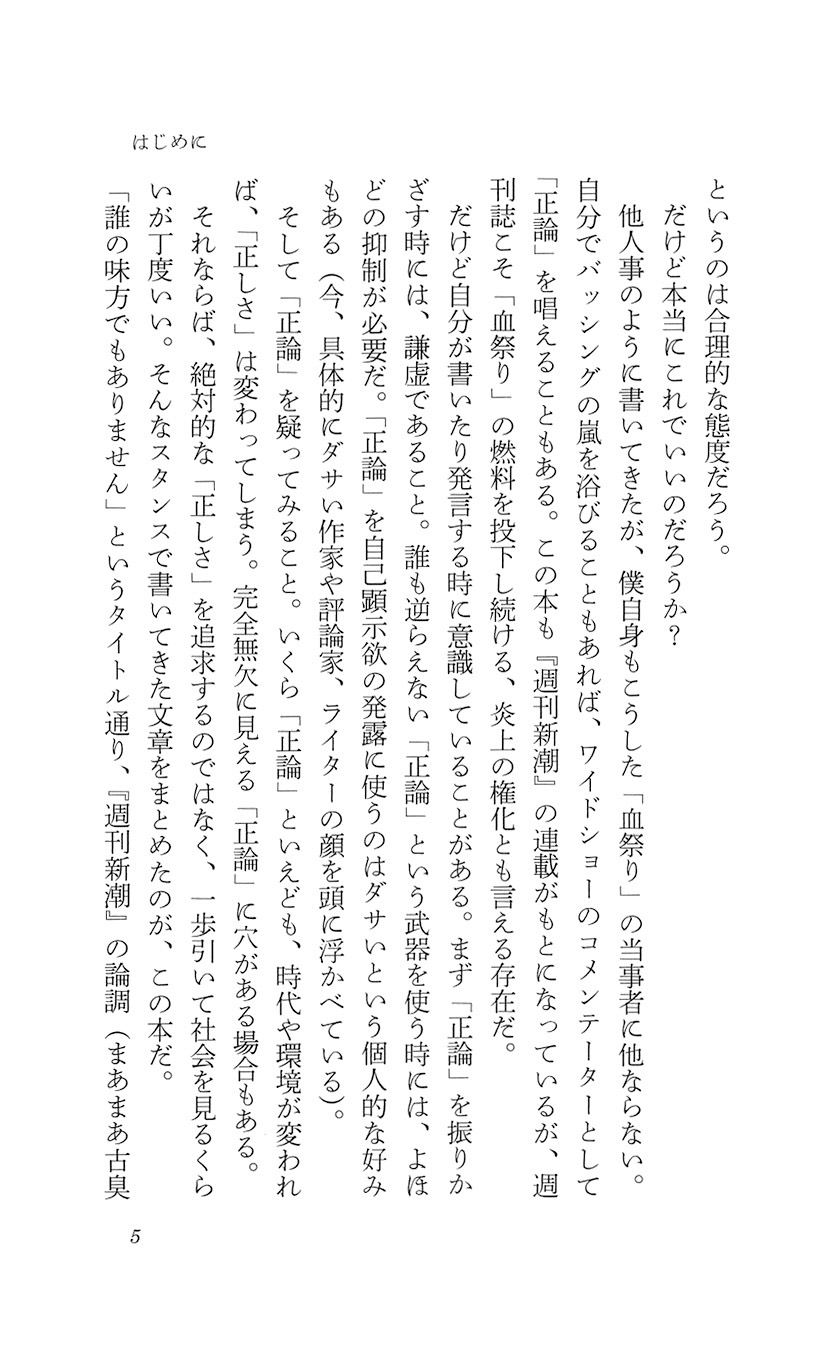 はじめに
というのは合理的な態度だろう。
だけど本当にこれでいいのだろうか？
他人事のように書いてきたが、僕自身もこうした「血祭り」の当事者に他ならない。
自分でバッシングの嵐を浴びることもあれば、ワイドショーのコメンテーターとして
「正論」を唱えることもある。この本も『週刊新潮』の連載がもとになっているが、週
刊誌こそ「血祭り」の燃料を投下し続ける、炎上の権化とも言える存在だ。
だけど自分が書いたり発言する時に意識していることがある。まず「正論」を振りか
ざす時には、謙虚であること。誰も逆らえない「正論」という武器を使う時には、よほ
どの抑制が必要だ。「正論」を自己顕示欲の発露に使うのはダサいという個人的な好み
もある（今、具体的にダサい作家や評論家、ライターの顔を頭に浮かべている）。
そして「正論」を疑ってみること。いくら「正論」といえども、時代や環境が変われ
ば、「正しさ」は変わってしまう。完全無欠に見える「正論」に穴がある場合もある。
それならば、絶対的な「正しさ」を追求するのではなく、一歩引いて社会を見るくら
いが丁度いい。そんなスタンスで書いてきた文章をまとめたのが、この本だ。
「誰の味方でもありません」というタイトル通り、『週刊新潮』の論調（まあまあ古臭
5